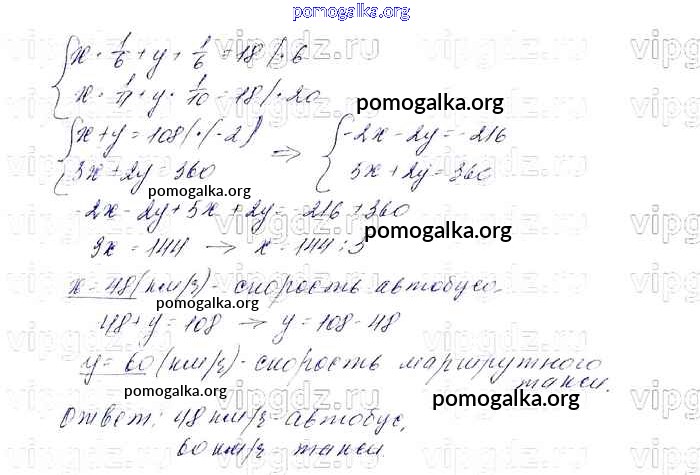 pomogalka.org
x · 1/6 + y · 1/6 = 18 | · 6
x · 1/4 + y · 1/10 = 18 | · 20
pomogalka.org
x + y = 108 | · (-2) ⇒ -2x - 2y = -216
5x + 2y = 360 5x + 2y = 360
pomogalka.org
-2x - 2y + 5x + 2y = -216 + 360
pomogalka.org
3x = 144 → x = 144 : 3
x = 48 (км/ч) - скорость автобуса.
pomogalka.org
48 + y = 108 → y = 108 - 48
y = 60 (км/ч) - скорость маршрутного
такси.
pomogalka.org
pomogalka.org
Ответ: 48 км/ч - автобус,
60 км/ч - такси.
vipgdz.ru